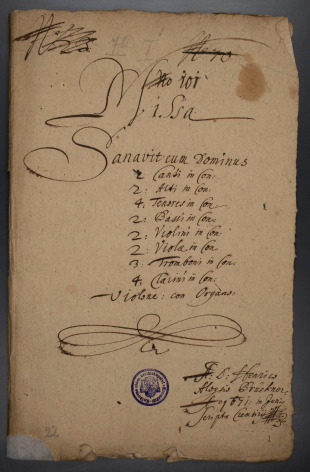 No 101
Missa
Sanavit eum Dominus
2 Canti in Con:
2: Alti in Con:
4. Tenores in Con
2: Bassi in Con:
2: Violini in Con:
2: Violæ in Con
3: Tromboni in Con:
4. Clarini in Con:
Violone: con Organo.
D: Henrico
Aloysio Brückner
1671
Scripta
22